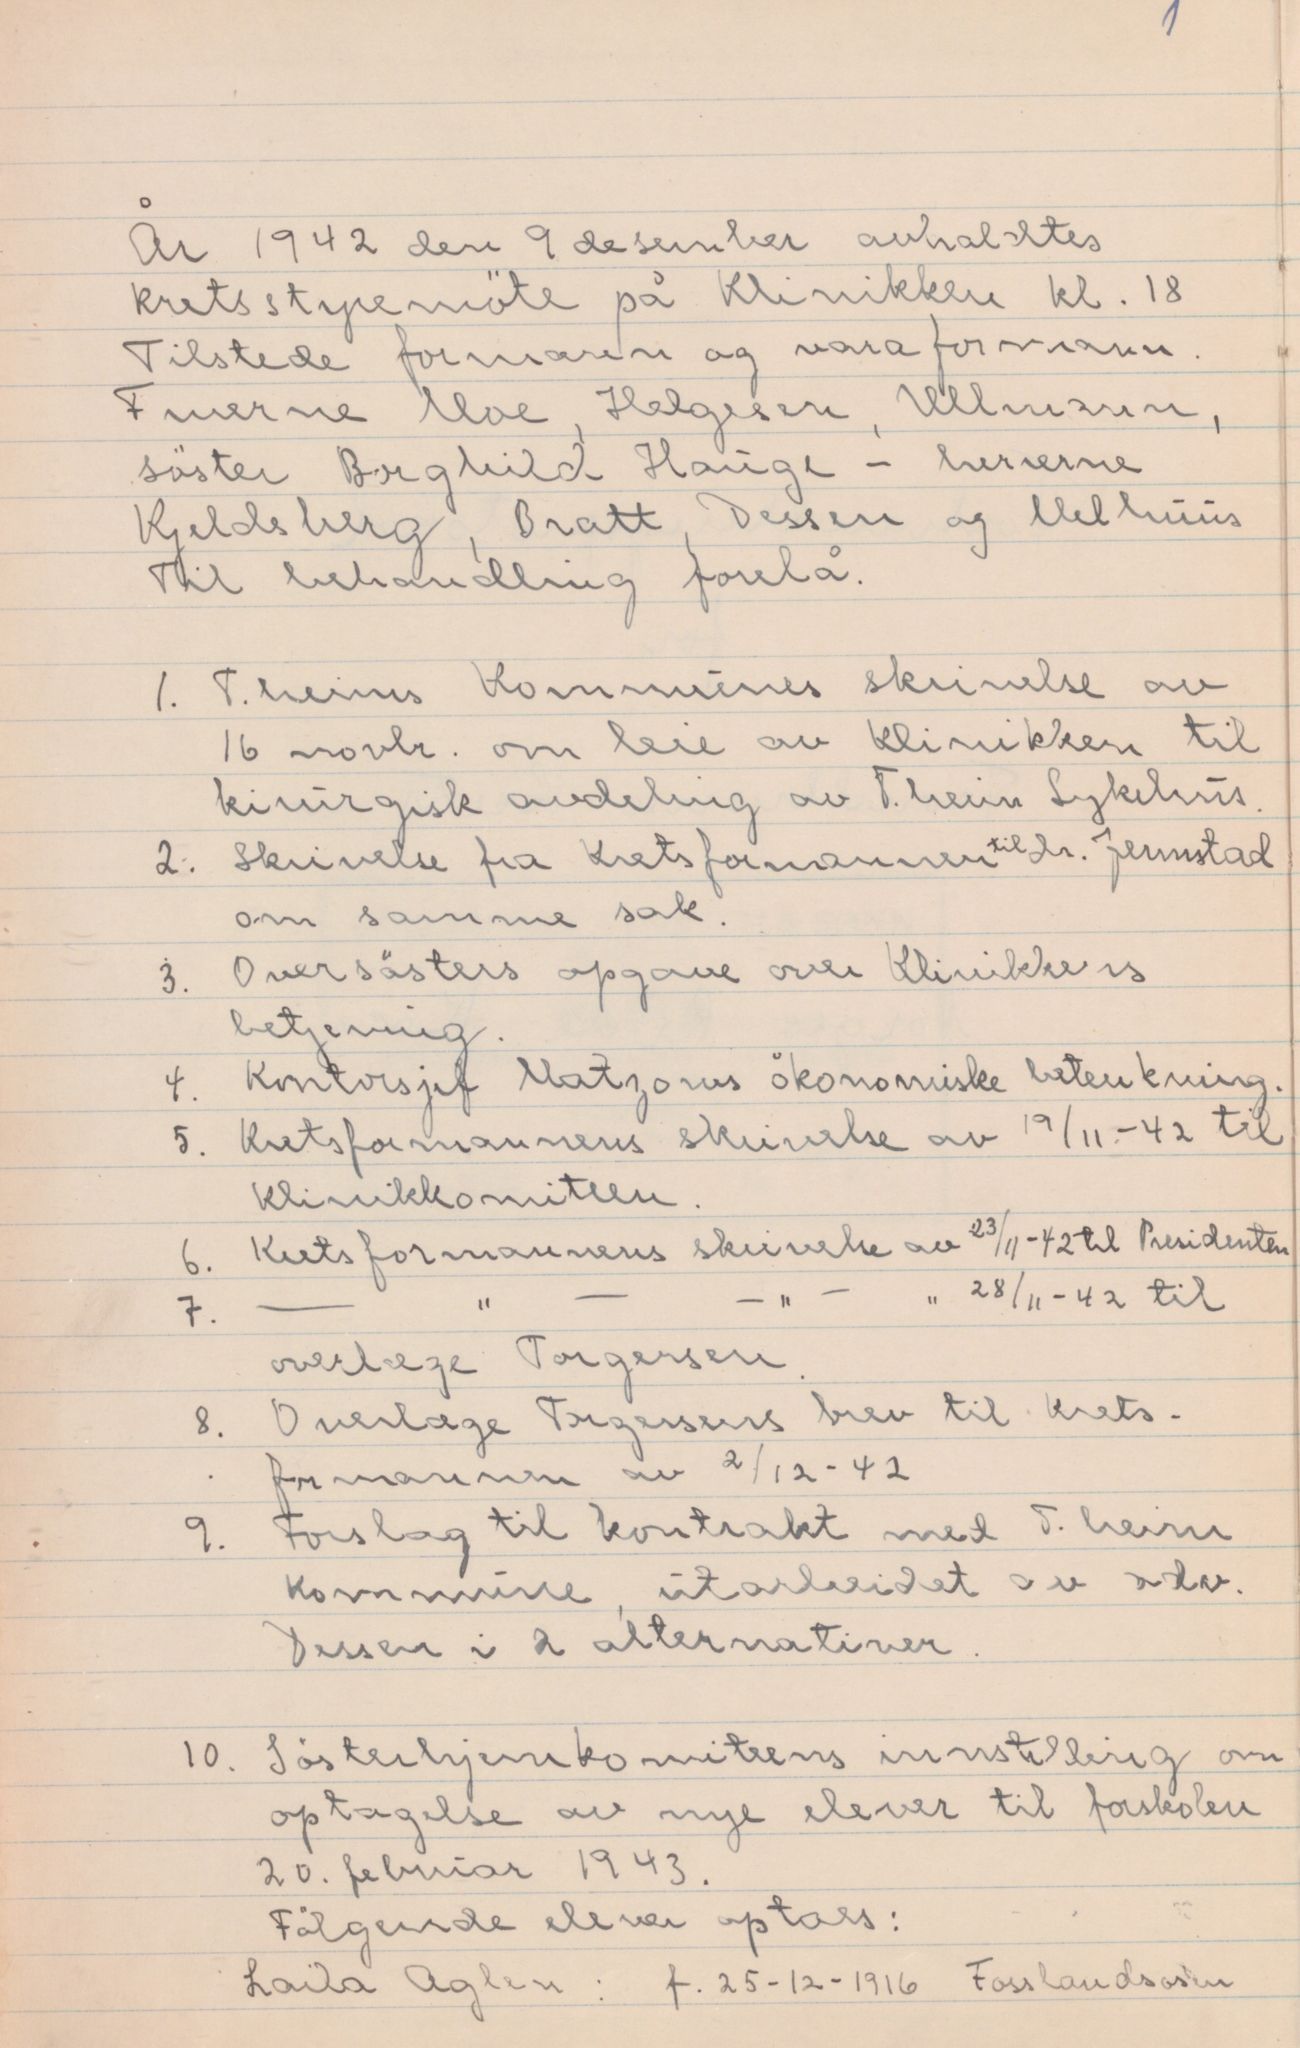 1
År 1942 den 9 desember avholdtes
kretsstyremöte på Klinikken kl. 18
Tilstede formann og varaformann.
Fruerne Moe, Helgesen, Ullmann,
söster Borghild Hauge - herrerne
Kjeldsberg, Bratt, Dessen og Melhuus
Til behandling forelå.
1. T.heims Kommunes skrivelse av
16 novbr. om leie av Klinikken til
kirurgisk avdeling av T.heim Sykehus.
2. Skrivelse fra Kretsformannen til dr. Jermstad
om samme sak.
3. Oversösters opgave over Klinikkens
betjening.
4. Kontorsjef Matzows ökonomiske betenkning.
5. Kretsformannens skrivelse av 19/11-42 til
Klinikkomiteen.
6. Kretsformannens skrivelse av 23/11-42 til Presidenten
7. — " — — " — " 28/11-42 til
overlæge Torgersen.
8. Overlæge Torgersens brev til Krets-
formannen av 2/12-42
9. Forslag til kontrakt med T.heim
Kommune, utarbeidet av adv.
Dessen i 2 alternativer.
10. Sösterhjemkomiteens innstilling om
optagelse av nye elever til forskolen
20. februar 1943.
Fölgende elever optaes:
Laila Aglen : f. 25-12-1916 Fosslandsosen